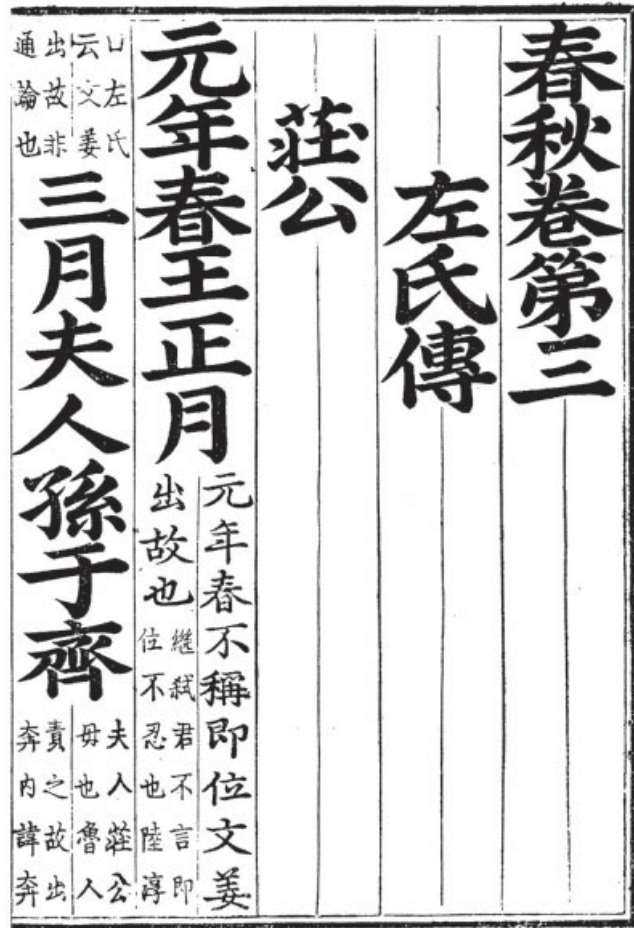 春秋卷第三
左氏傳
莊公
元年春王正月
元年春不稱即位文姜
出故也
繼弑君不言即
位不忍也陸淳
口左氏
云文姜
出故非
通論也
三月夫人孫于齊
夫人莊公
毋也魯人
責之故出
奔内諱奔